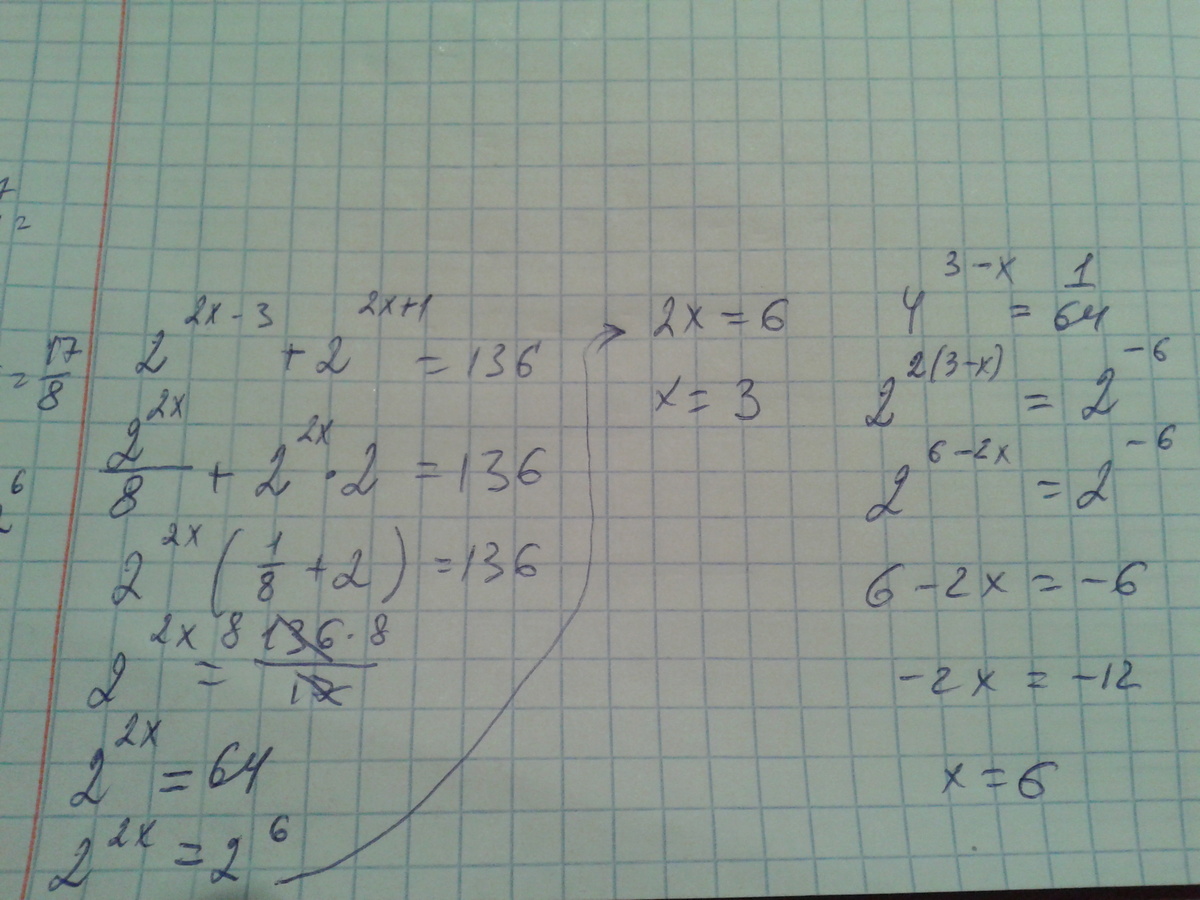 7
2^{2x-3} + 2^{2x+1} = 136
= 17/8
2^{2x}/8 + 2^{2x} · 2 = 136
6
2^{2x} (1/8 + 2) = 136
2^{2x} = 8 136 · 8 / 17
2^{2x} = 64
2^{2x} = 2^6
2x = 6
x = 3
4^{3-x} = 1/64
2^{2(3-x)} = 2^{-6}
2^{6-2x} = 2^{-6}
6 - 2x = -6
-2x = -12
x = 6